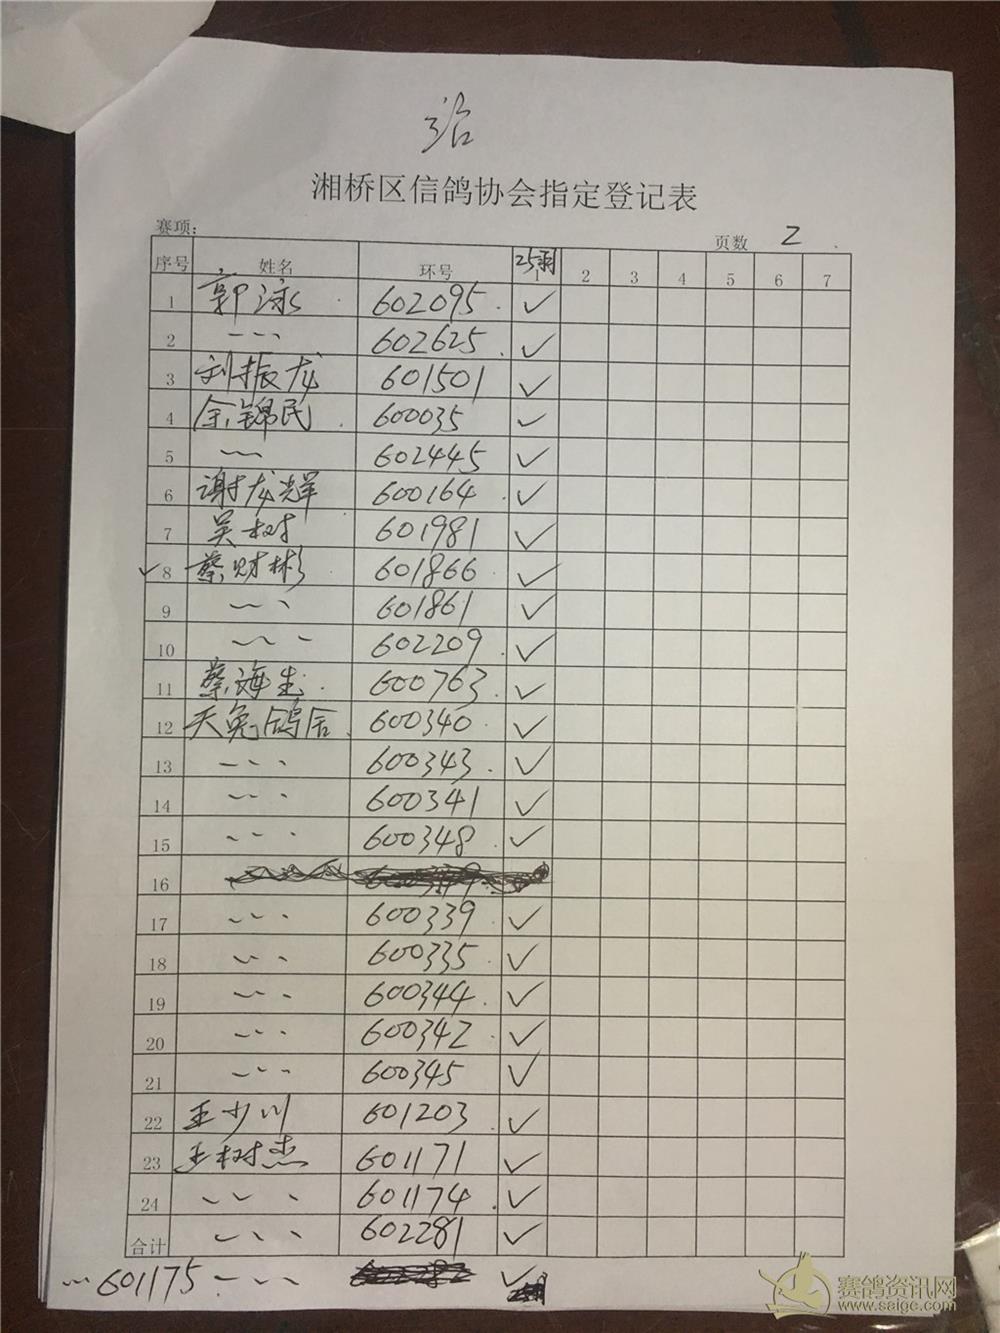 湘桥区信鸽协会指定登记表
赛项： 页数 2
序号 姓名 环号 1 2 3 4 5 6 7
1 郭泳 602095 ✓
2 602625 ✓
3 刘振龙 601501 ✓
4 余锦民 600035 ✓
5 602445 ✓
6 谢龙辉 600164 ✓
7 吴树 601981 ✓
✓ 8 蔡财彬 601866 ✓
9 601861 ✓
10 602209 ✓
11 蔡海生 600763 ✓
12 天兔鸽舍 600340 ✓
13 600343 ✓
14 600341 ✓
15 600348 ✓
16
17 600339 ✓
18 600335 ✓
19 600344 ✓
20 600342 ✓
21 600345 ✓
22 王少川 601203 ✓
23 王树杰 601171 ✓
24 601174 ✓
合计 602281 ✓
601175 ✓
赛鸽资讯网
www.saige.com